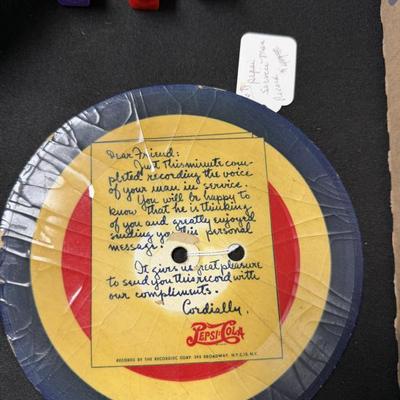 Pepsi
Service Man
Record
Dear Friend:
Just this minute com-
pleted recording the voice
of your man in service.
You will be happy to
know that he is thinking
of you and greatly enjoyed
sending you this personal
message.
It gives us great pleasure
to send you this record with
our compliments.
Cordially,
PEPSI-COLA
RECORDED BY THE RECORDISC CORP. 395 BROADWAY, N.Y.C.13, N.Y.